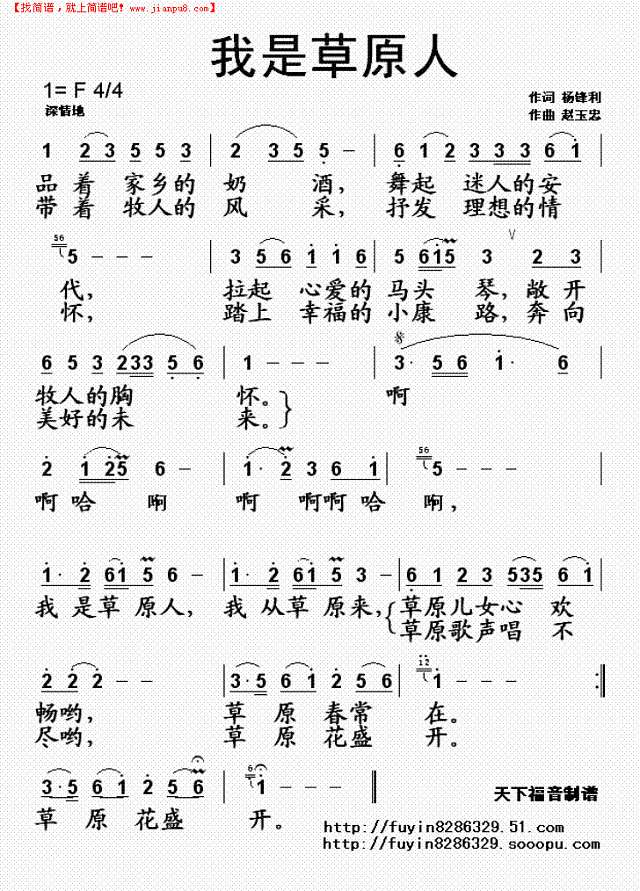 【找简谱，就上简谱吧！www.jianpu8.com】
我是草原人
1= F 4/4
深情地
作词 杨锋利
作曲 赵玉忠
1 2 3 5 5 3 | 2 3 5 5 – | 6 1 2 3 3 3 6 1 |
品着 家乡的 奶 酒， 舞起 迷人的安
带着 牧人的 风 采， 抒发 理想的情
56 5 – – – | 3 5 6 1 1 6 | 5 615 3 2 3 |
代， 拉起 心爱的 马头 琴，敞开
怀， 踏上 幸福的 小康 路，奔向
6 5 3 233 5 6 | 1 – – – | 3· 5 6 1· 6 |
牧人的胸 怀。 啊
美好的未 来。
2 1 25 6 – | 1· 2 3 6 1 | 56 5 – – – |
啊 哈 啊 啊 啊啊 哈 啊，
1· 2 61 5 6 – | 1· 2 61 5 3 – | 6 1 2 3 535 6 |
我 是草 原人， 我 从草 原来， 草原儿女心 欢
草原歌声唱 不
2 2 2 – – | 3·5 6 1 2 5 6 | 12 1 – – – :|
畅哟， 草 原 春常 在。
尽哟， 草 原 花盛 开。
3·5 6 1 2 5 6 | 1 – – – ‖
草 原 花盛 开。
天下福音制谱
http://fuyin8286329.51.com/
http://fuyin8286329.sooopu.com/